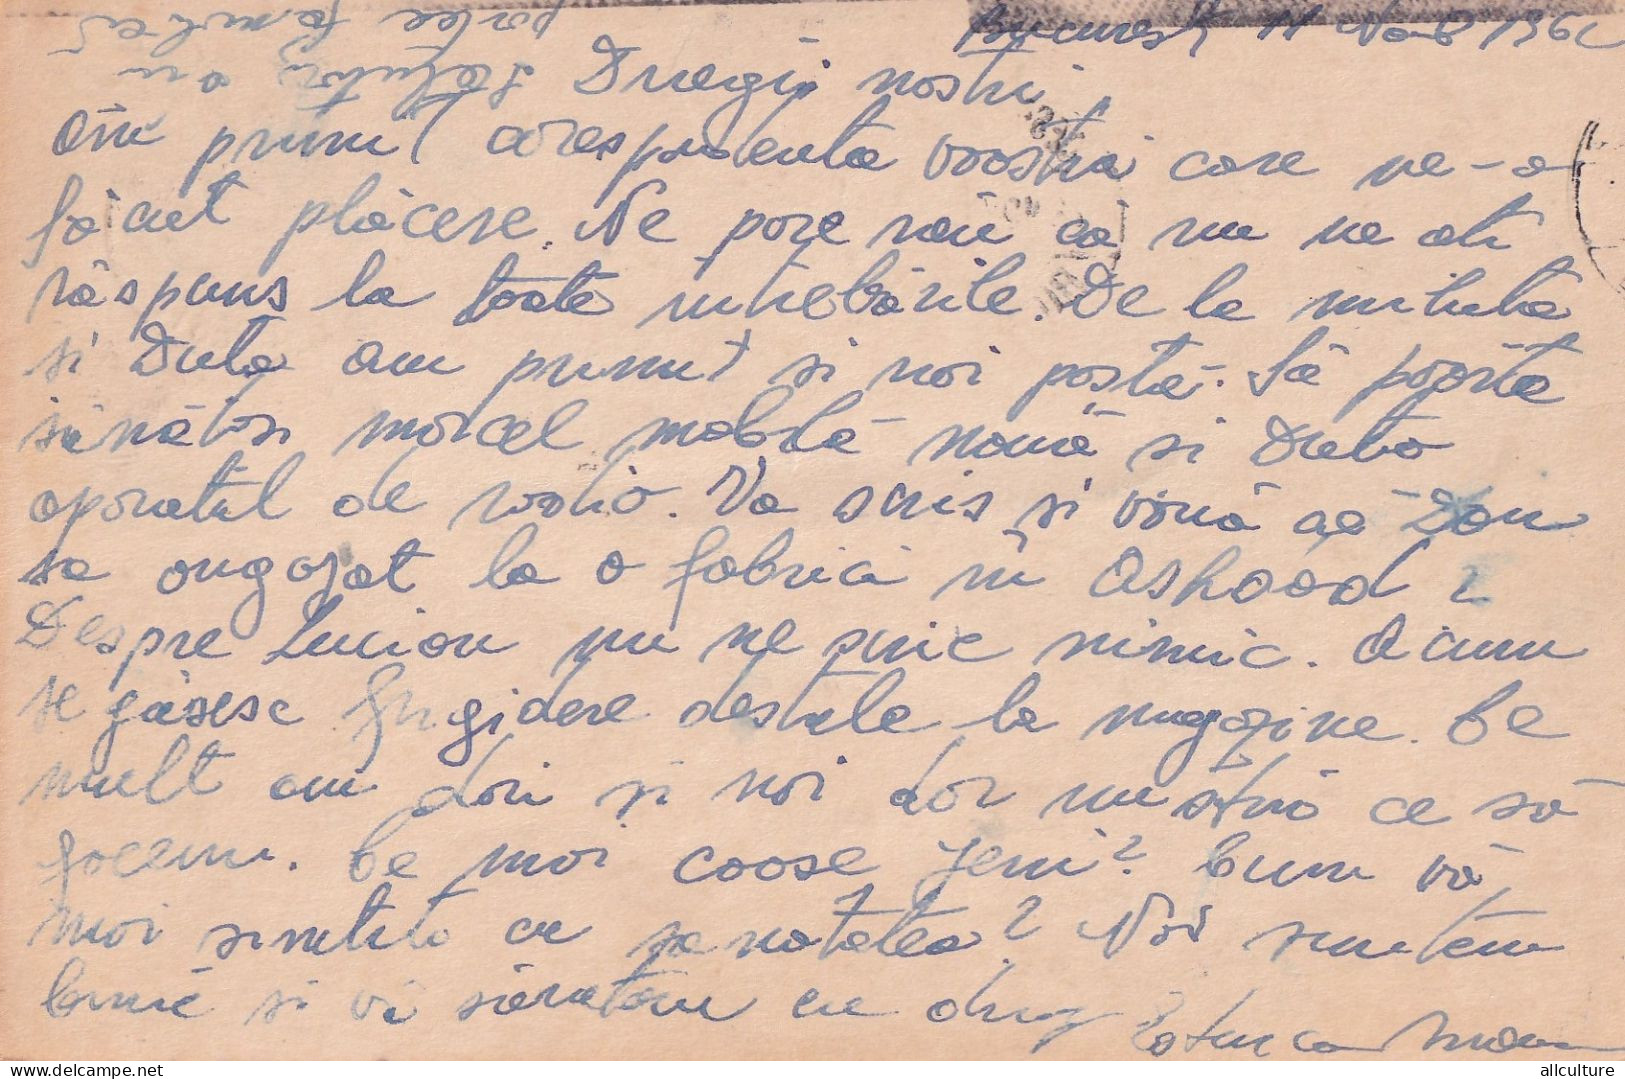 Bucuresti 11 Nov 1962
Dragii nostri,
Am primit corespondenta voastră care ne-a
făcut plăcere. Ne pare rău că nu ne ati
răspuns la toate intrebările. De la
si Duta am primit si noi postă. Să poarte
sănătosi Marcel mobilă nouă si Duta
aparatul de radio. Va scris si vouă că Dan
sa angajat la o fabrică in Ashdod ?
Despre Lucian nu ne scrie nimic. Acum
se găsesc frigidere destule la magazine. Ce
mult am dori si noi dar nu stiu ce să
facem. Ce mai coase Jeni? Cum vă
mai simtiti cu sanatatea? Noi suntem
bine si vă sărutăm cu drag
Saluturi din
partea familiei
allculture